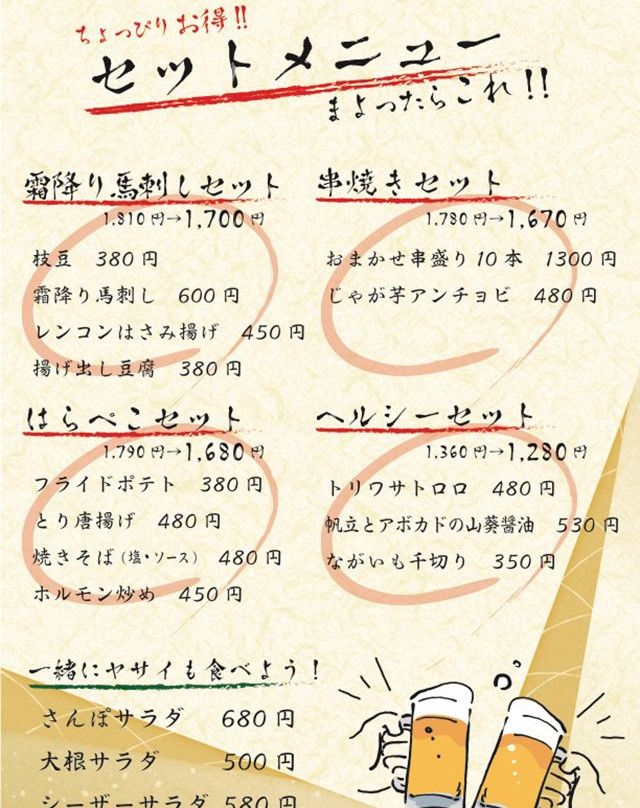 ちょっぴりお得!!
セットメニュー
まよったらこれ!!
霜降り馬刺しセット
1,810円→1,700円
枝豆 380円
霜降り馬刺し 600円
レンコンはさみ揚げ 450円
揚げ出し豆腐 380円
串焼きセット
1,780円→1,670円
おまかせ串盛り10本 1300円
じゃが芋アンチョビ 480円
はらぺこセット
1,790円→1,680円
フライドポテト 380円
とり唐揚げ 480円
焼きそば(塩・ソース) 480円
ホルモン炒め 450円
ヘルシーセット
1,360円→1,280円
トリワサトロロ 480円
帆立とアボカドの山葵醤油 530円
ながいも千切り 350円
一緒にヤサイも食べよう!
さんぽサラダ 680円
大根サラダ 500円
シーザーサラダ 580円